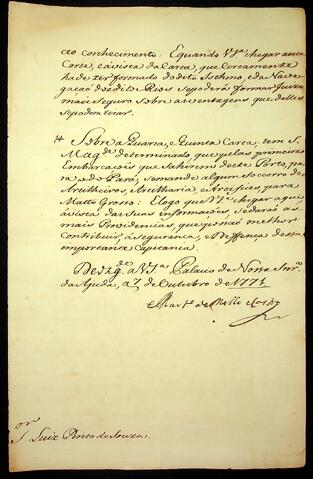 ao conhecimento: E quando V S.ª chegar a esta
Corte, e á vista da Carta, que certamente
ha de ter formado do dito Isthmo, e da Nave-
gação d'os ditos Rios se poderá formar Juizo
mais Seguro sobre as ventagens que delles
se podem tirar.
Sobre a Quarta, e Quinta Carta, tem S.
Mag.de determinado, que pelas primeiras
Embarcaçoĩs que sahirem deste Porto, pa-
ra o do Pará, se mande algum Socorro de
Artilheiros, Artilharia, e Artifices, para
Matto Grosso: E logo que V S.ª chegar aqui,
á vista das suas informaçoẽs, se darão as
mais Providencias, que possaõ melhor
contribuir, á Segurança, e Deffença dessa
importante Capitania.
D.s g.de a V S.ª Palacio de Nossa Snr.ª
da Ajuda, a 7 de Outubro de 1771
Mart.º de Mello e Castro
S.or Luiz Pinto de Souza.